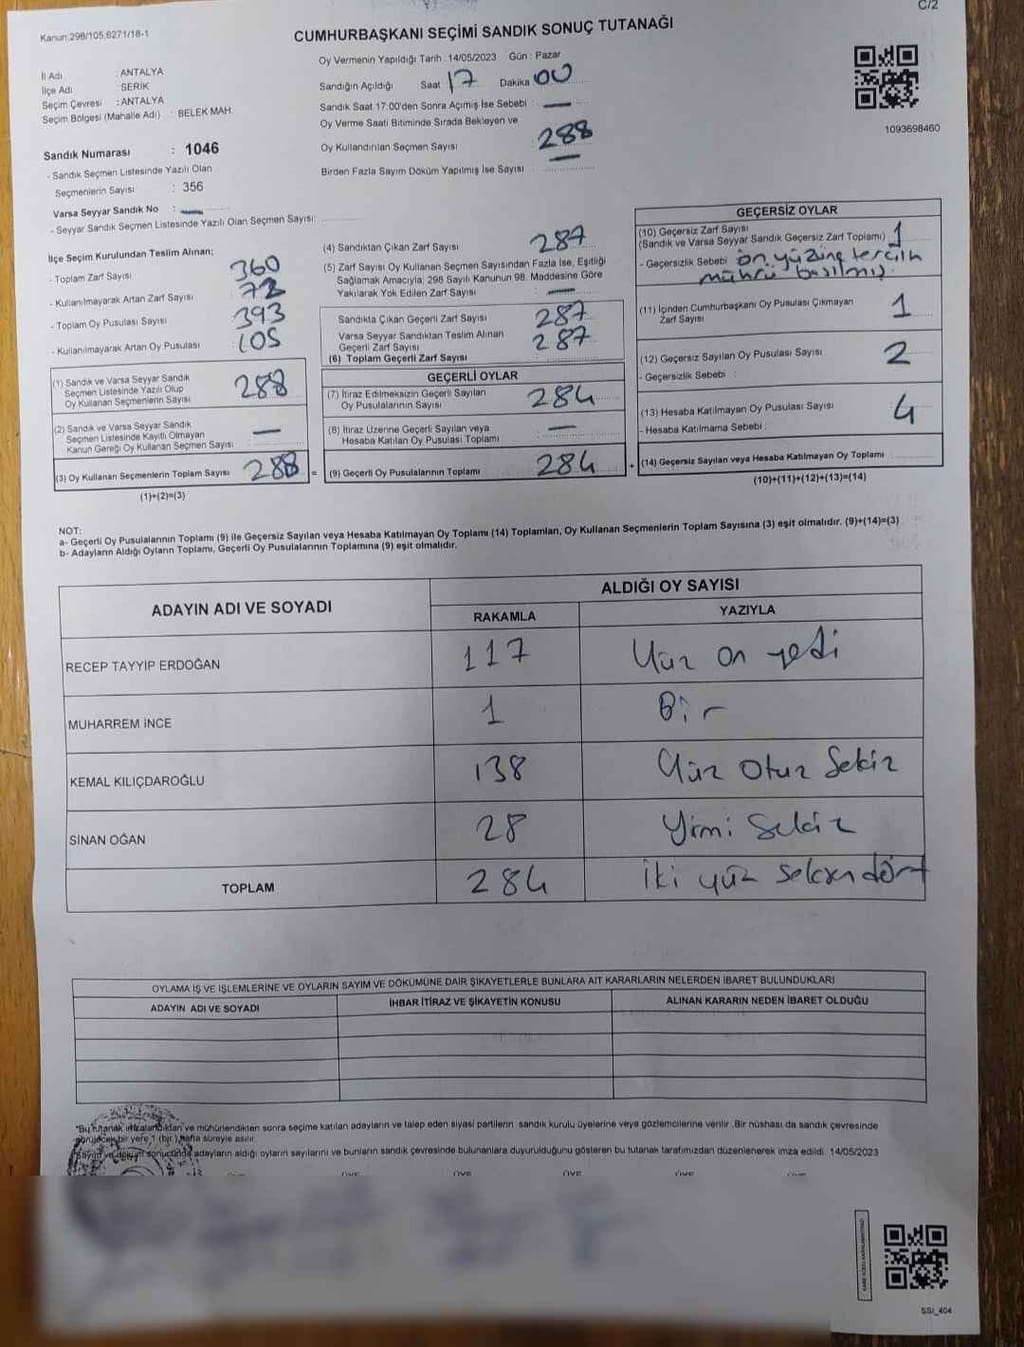 C/2
Kanun:298/105,6271/18-1
CUMHURBAŞKANI SEÇİMİ SANDIK SONUÇ TUTANAĞI
İl Adı : ANTALYA
İlçe Adı : SERİK
Seçim Çevresi : ANTALYA
Seçim Bölgesi (Mahalle Adı) : BELEK MAH.
Oy Vermenin Yapıldığı Tarih : 14/05/2023 Gün : Pazar
Sandığın Açıldığı Saat 17 Dakika 00
Sandık Saat 17:00'den Sonra Açımış İse Sebebi —
Oy Verme Saati Bitiminde Sırada Bekleyen ve
Oy Kullandırılan Seçmen Sayısı 288
Birden Fazla Sayım Döküm Yapılmış İse Sayısı —
1093698460
Sandık Numarası : 1046
- Sandık Seçmen Listesinde Yazılı Olan
Seçmenlerin Sayısı : 356
Varsa Seyyar Sandık No : —
- Seyyar Sandık Seçmen Listesinde Yazılı Olan Seçmen Sayısı:
İlçe Seçim Kurulundan Teslim Alınan;
- Toplam Zarf Sayısı 360
- Kullanılmayarak Artan Zarf Sayısı 72
- Toplam Oy Pusulası Sayısı 393
- Kullanılmayarak Artan Oy Pusulası 105
(1) Sandık ve Varsa Seyyar Sandık
Seçmen Listesinde Yazılı Olup
Oy Kullanan Seçmenlerin Sayısı 288
(2) Sandık ve Varsa Seyyar Sandık
Seçmen Listesinde Kayıtlı Olmayan
Kanun Gereği Oy Kullanan Seçmen Sayısı —
(3) Oy Kullanan Seçmenlerin Toplam Sayısı 288 =
(1)+(2)=(3)
(4) Sandıktan Çıkan Zarf Sayısı 287
(5) Zarf Sayısı Oy Kullanan Seçmen Sayısından Fazla İse, Eşitliği
Sağlamak Amacıyla; 298 Sayılı Kanunun 98. Maddesine Göre
Yakılarak Yok Edilen Zarf Sayısı —
Sandıkta Çıkan Geçerli Zarf Sayısı 287
Varsa Seyyar Sandıktan Teslim Alınan
Geçerli Zarf Sayısı 287
(6) Toplam Geçerli Zarf Sayısı
GEÇERLİ OYLAR
(7) İtiraz Edilmeksizin Geçerli Sayılan
Oy Pusulalarının Sayısı 284
(8) İtiraz Üzerine Geçerli Sayılan veya
Hesaba Katılan Oy Pusulası Toplamı —
(9) Geçerli Oy Pusulalarının Toplamı 284 +
GEÇERSİZ OYLAR
(10) Geçersiz Zarf Sayısı
(Sandık ve Varsa Seyyar Sandık Geçersiz Zarf Toplamı) 1
- Geçersizlik Sebebi ön yüzüne tercih
mührü basılmış.
(11) İçinden Cumhurbaşkanı Oy Pusulası Çıkmayan
Zarf Sayısı 1
(12) Geçersiz Sayılan Oy Pusulası Sayısı 2
- Geçersizlik Sebebi :
(13) Hesaba Katılmayan Oy Pusulası Sayısı 4
- Hesaba Katılmama Sebebi :
(14) Geçersiz Sayılan veya Hesaba Katılmayan Oy Toplamı
(10)+(11)+(12)+(13)=(14)
NOT:
a- Geçerli Oy Pusulalarının Toplamı (9) ile Geçersiz Sayılan veya Hesaba Katılmayan Oy Toplamı (14) Toplamları, Oy Kullanan Seçmenlerin Toplam Sayısına (3) eşit olmalıdır. (9)+(14)=(3)
b- Adayların Aldığı Oyların Toplamı, Geçerli Oy Pusulalarının Toplamına (9) eşit olmalıdır.
ADAYIN ADI VE SOYADI
ALDIĞI OY SAYISI
RAKAMLA YAZIYLA
RECEP TAYYİP ERDOĞAN 117 Yüz on yedi
MUHARREM İNCE 1 Bir
KEMAL KILIÇDAROĞLU 138 Yüz Otuz Sekiz
SİNAN OĞAN 28 Yirmi Sekiz
TOPLAM 284 İki yüz seksen dört
OYLAMA İŞ VE İŞLEMLERİNE VE OYLARIN SAYIM VE DÖKÜMÜNE DAİR ŞİKAYETLERLE BUNLARA AİT KARARLARIN NELERDEN İBARET BULUNDUKLARI
ADAYIN ADI VE SOYADI İHBAR İTİRAZ VE ŞİKAYETİN KONUSU ALINAN KARARIN NEDEN İBARET OLDUĞU
*Bu tutanak imzalandıktan ve mühürlendikten sonra seçime katılan adayların ve talep eden siyasi partilerin sandık kurulu üyelerine veya gözlemcilerine verilir. Bir nüshası da sandık çevresinde
görülecek bir yere 1 (bir) hafta süreyle asılır.
Sayım ve döküm sonucunda adayların aldığı oyların sayılarını ve bunların sandık çevresinde bulunanlara duyurulduğunu gösteren bu tutanak tarafımızdan düzenlenerek imza edildi. 14/05/2023
SSI_404